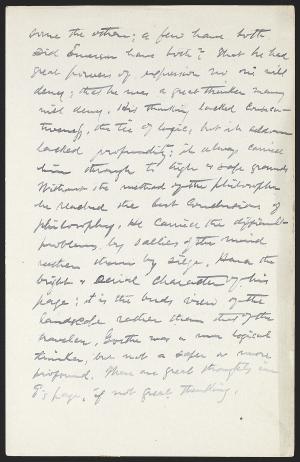 some the other; a few have both.
Did Emerson have both? That he had
great powers of expression no one will
deny; that he was a great thinker many
will deny. His thinking lacked consecu-
tiveness, the tie of logic, but it seldom
lacked profundity; it always carried
him through to high & safe grounds
Without the method of the philosopher
he reached the best conclusions of
philosophy. He carried the difficult
problems by sallies of the mind
rather than by siege. Hence the
bright & aerial character of his
page; it is the birds view of the
landscape rather than that of the
traveler. Goethe was a more logical
thinker, but not a safer or more
profound. There are great thoughts in
page, if not great thinking.